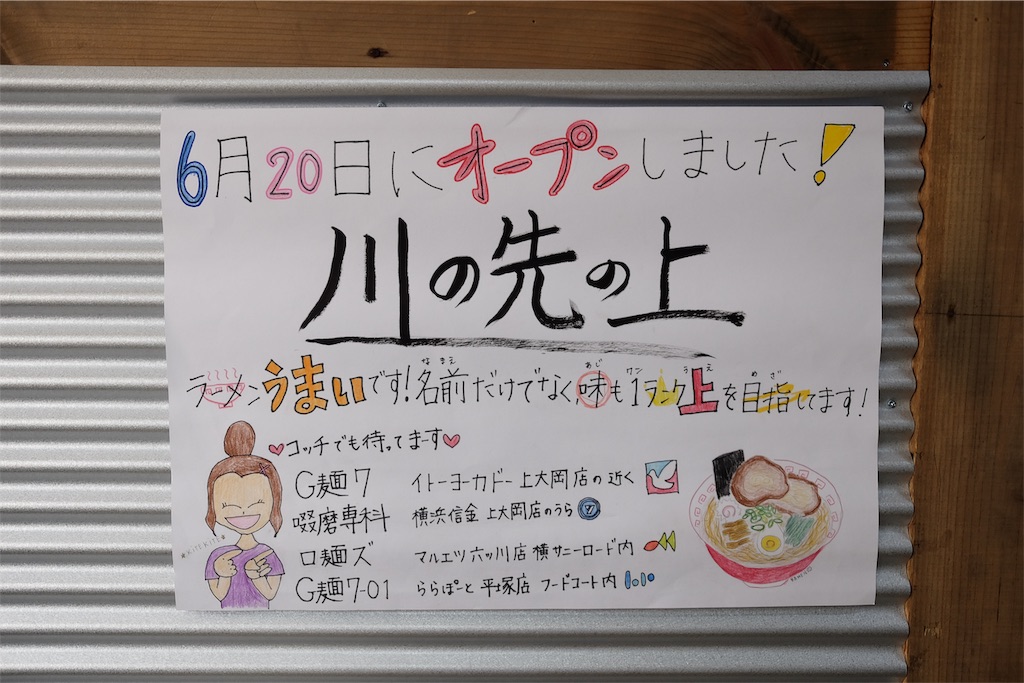 6月20日にオープンしました!
川の先の上
ラーメンうまいです!名前だけでなく味も1ランク上を目指してます!
なまえ あじ ワン うえ めざ
♥コッチでも待ってまーす♥
G麺7 イトーヨーカドー上大岡店の近く
啜磨専科 横浜信金 上大岡店のうら
口麺ズ マルエツ六ッ川店 横サニーロード内
G麺7-01 ららぽーと 平塚店 フードコート内